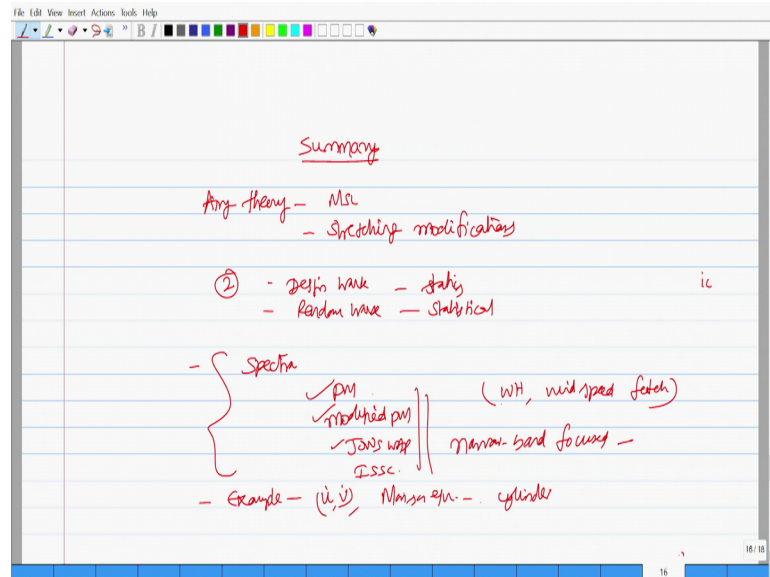 File Edit View Insert Actions Tools Help
B I
Summary
Airy theory - MSL
- Stretching modifications
② - Design wave - static
ic
- Random wave - Statistical
- Spectra
✓ PM
(WH, wind speed fetch)
✓ modified PM
✓ JONSWAP
narrow-band focused -
ISSC.
- Example - (u̇, v̇), Morison eqn. - cylinder
16/18
16